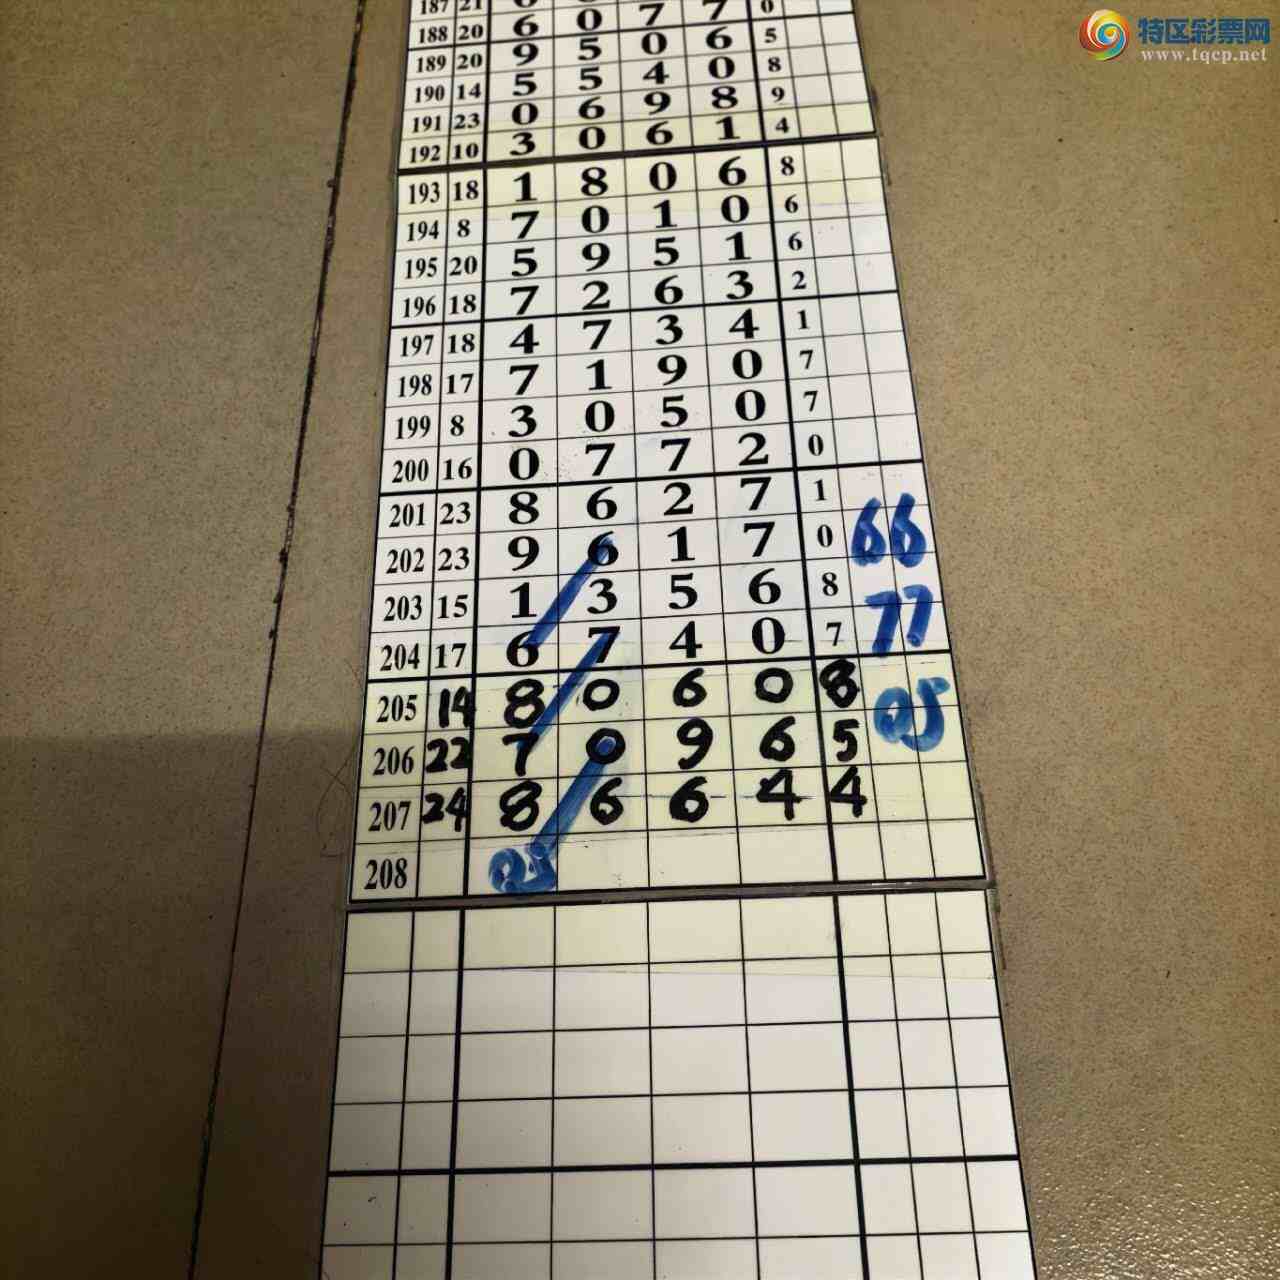 特区彩票网
www.tqcp.net
187 21
188 20 6 0 7 7 0
189 20 9 5 0 6 5
190 14 5 5 4 0 8
191 23 0 6 9 8 9
192 10 3 0 6 1 4
193 18 1 8 0 6 8
194 8 7 0 1 0 6
195 20 5 9 5 1 6
196 18 7 2 6 3 2
197 18 4 7 3 4 1
198 17 7 1 9 0 7
199 8 3 0 5 0 7
200 16 0 7 7 2 0
201 23 8 6 2 7 1
202 23 9 6 1 7 0 66
203 15 1 3 5 6 8 77
204 17 6 7 4 0 7
205 14 8 0 6 0 8 05
206 22 7 0 9 6 5
207 24 8 6 6 4 4
208 05